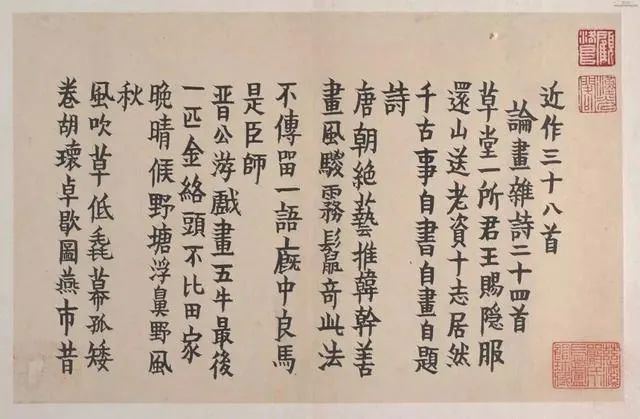 近作三十八首
論畫雜詩二十四首
草堂一所君王賜隱服
還山送老資十志居然
千古事自書自畫自題
詩
唐朝絕藝推韓幹善
畫風騣霧鬣奇此法
不傳留一語厩中良馬
是臣師
晋公游戲畫五牛最後
一匹金絡頭不比田家
晚晴候野塘浮鼻野風
秋
風吹草低毳幕孤矮
卷胡瓌卓歇圖燕市昔
顧洛阜
漢光閣